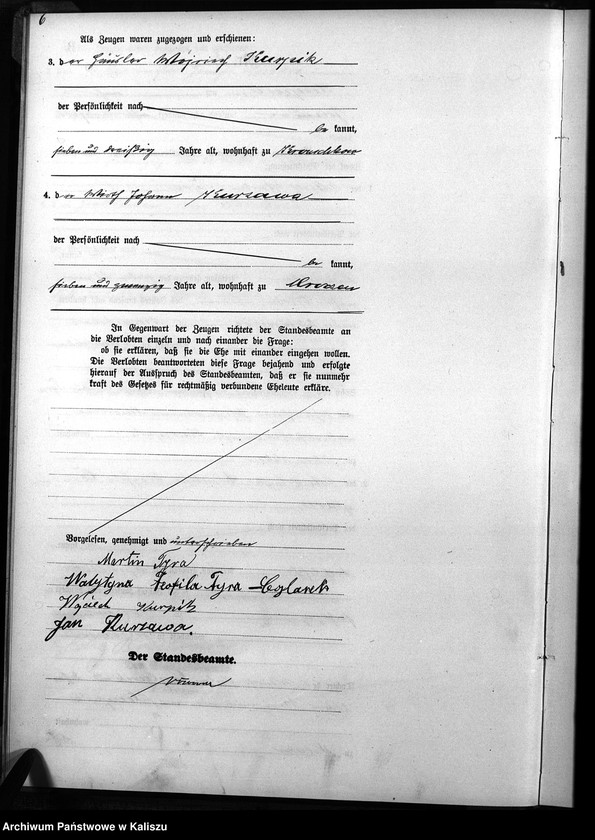 6
Als Zeugen waren zugezogen und erschienen:
3. der Häusler Wojciech Kurpik
der Persönlichkeit nach
be kannt,
sieben und dreißig Jahre alt, wohnhaft zu
4. der Wirth Johann Kursawa
der Persönlichkeit nach
be kannt,
sieben und zwanzig Jahre alt, wohnhaft zu
In Gegenwart der Zeugen richtete der Standesbeamte an
die Verlobten einzeln und nach einander die Frage:
ob sie erklären, daß sie die Ehe mit einander eingehen wollen.
Die Verlobten beantworteten diese Frage bejahend und erfolgte
hierauf der Ausspruch des Standesbeamten, daß er sie nunmehr
kraft des Gesetzes für rechtmäßig verbundene Eheleute erkläre.
Vorgelesen, genehmigt und unterschrieben
Martin Tyra
Walytyna Teofila Tyra
Kurpik
Jan Kursawa.
Der Standesbeamte.
Archiwum Państwowe w Kaliszu